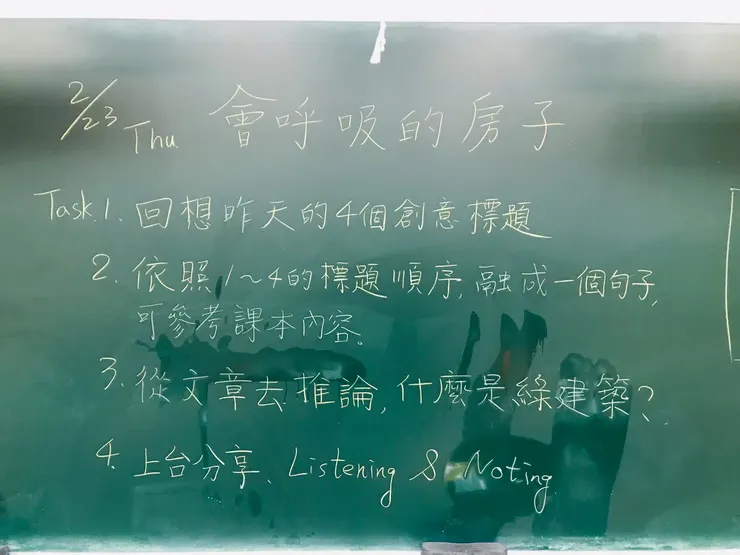 2/23 Thu. 會呼吸的房子
Task 1. 回想昨天的4個創意標題
2. 依照1~4的標題順序,融成一個句子,
可參考課本內容。
3. 從文章去推論,什麼是綠建築?
4. 上台分享、Listening & Noting